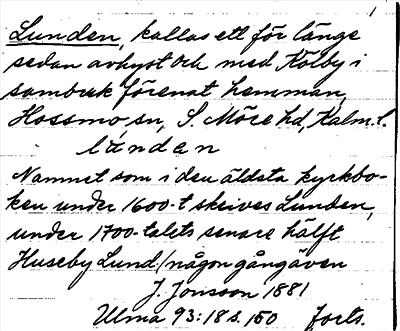 Lunden, kallas ett för länge
sedan avhyst och med Kölby i
sambruk förenat hemman,
Hossmo sn, S. Möre hd, Kalm. l.
lunden
Namnet som i den äldsta kyrkbo-
ken under 1600-t skrives Lunden,
under 1700-talets senare hälft
Huseby Lund/någon gång även
J. Jonsson 1881
Ulma 93:18 s. 150 forts.